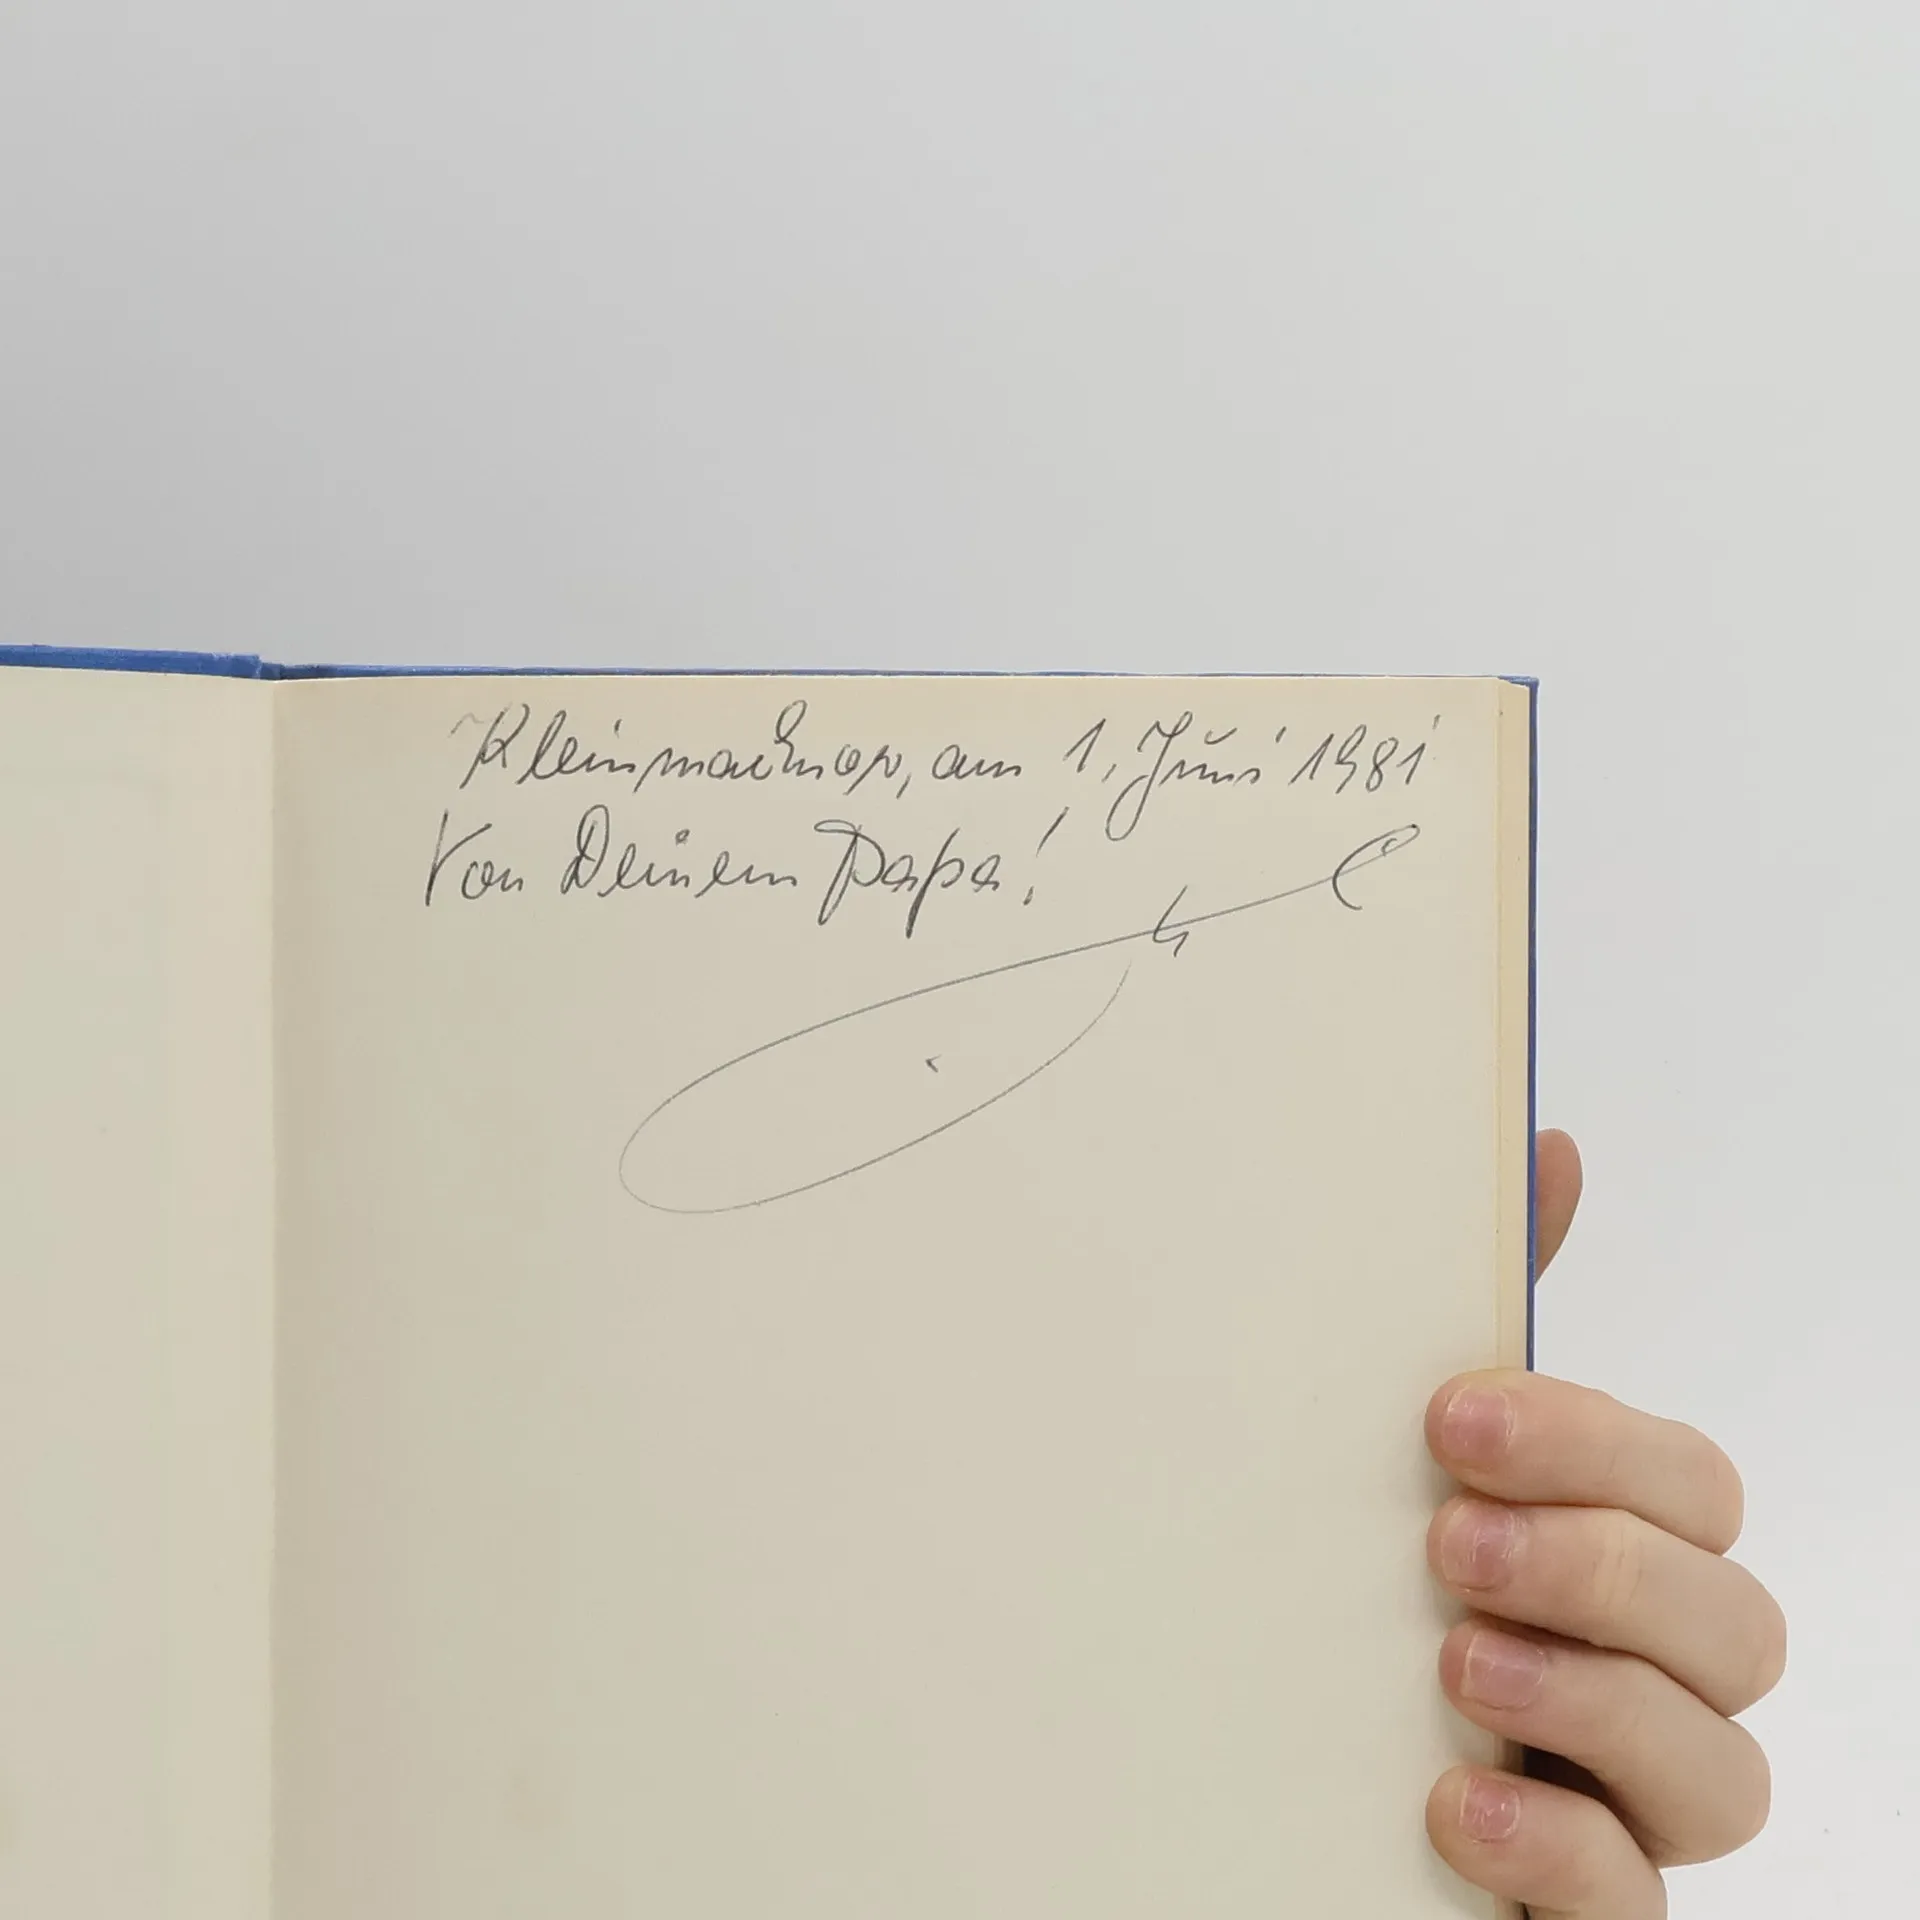 Kleinmachnow, am 1. Juni 1981
Von Deinem Papa!